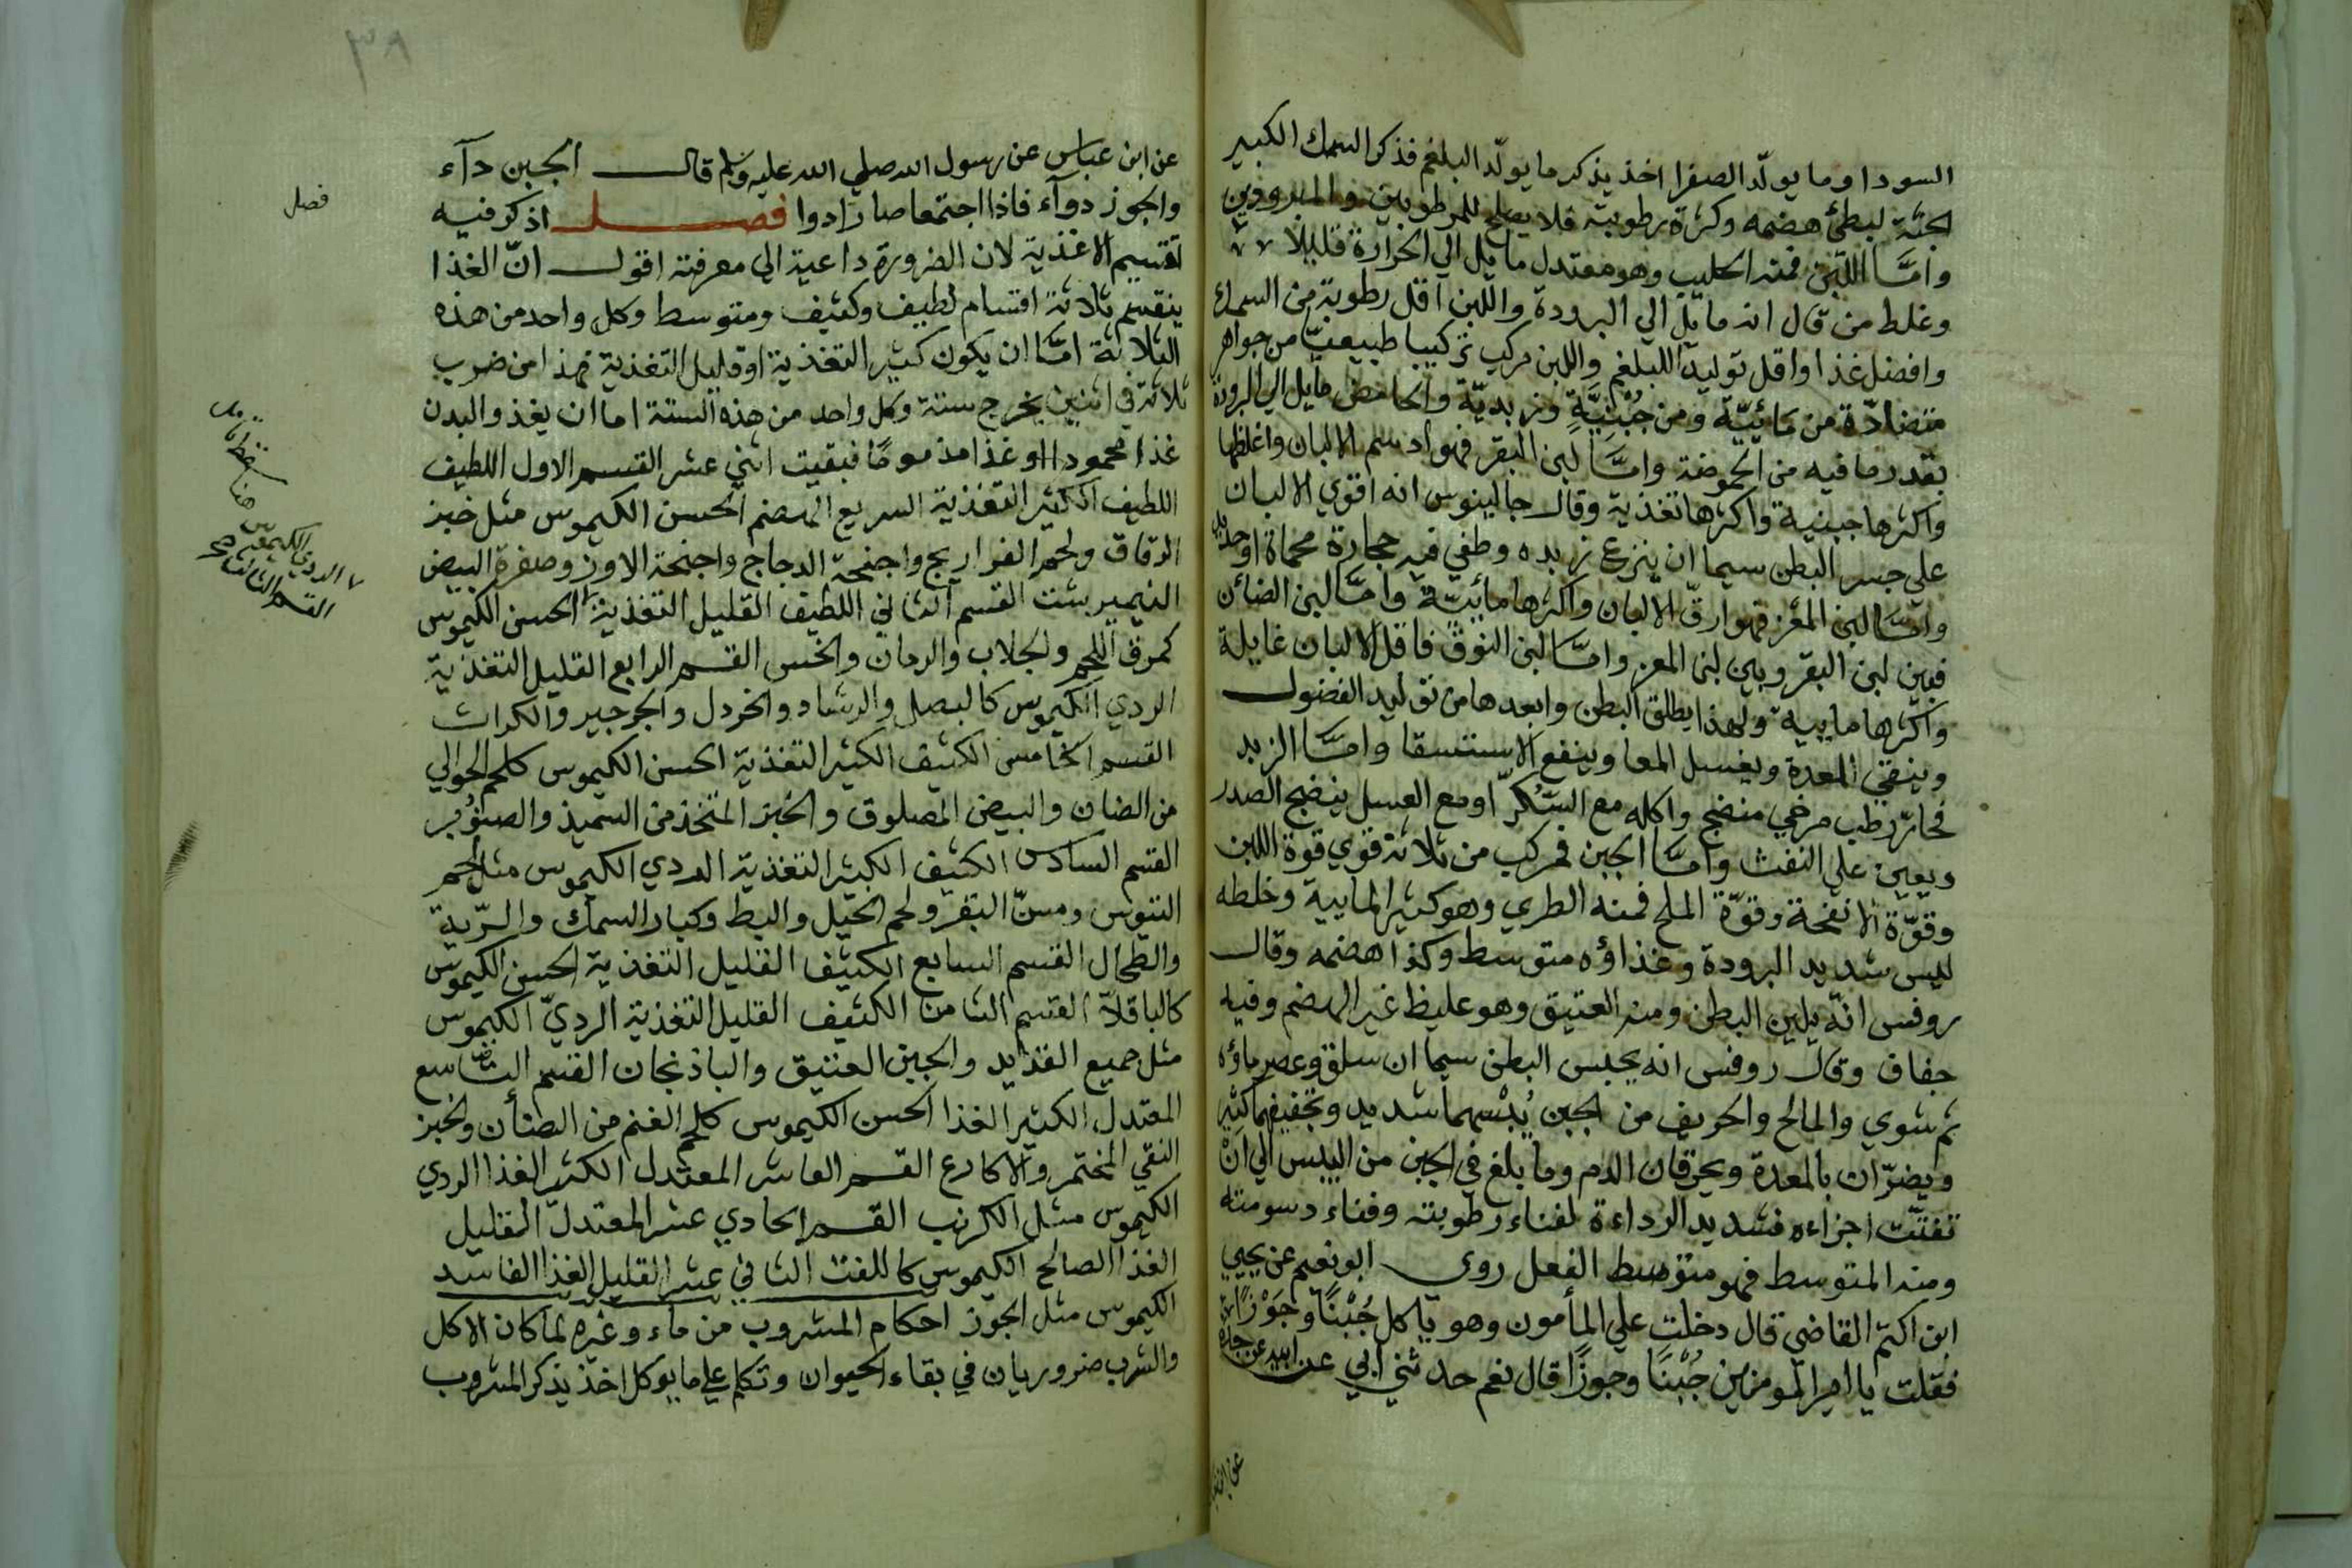 السودا وما يولّد الصفرا اخذ يذكر ما يولّد البلغم فذكر السمك الكبير
الجثة لبطئ هضمه وكثرة رطوبته فلا يصلح للمرطوبين والمبرودين
وامّا اللبن فمنه الحليب وهو معتدل مايل الي الحرارة قليلا
وغلط من قال انه مايل الي البرودة واللبن اقل رطوبة من السمك
وافضل غذا واقل توليدا للبلغم واللبن مركب تركيبا طبيعيّا من جواهر
متضادّة من مائيّة ومن جُبْنِيَّةٍ وزبديّة والحامض مايل الي البرودة
بقدر ما فيه من الحموضة وامّا لبن البقر فهو ادسم الالبان واغلظها
واكثرها جبنية واكثرها تغذية وقال جالينوس انه اقوي الالبان
علي حبس البطن سيما ان ينزع زبده وطفي فيه حجارة محماة او حديد
وامّا لبن المعز فهو ارقّ الالبان واكثرها مائيّة وامّا لبن الضائن
فبين لبن البقر وبين لبن المعز وامّا لبن النوق فاقل الالبان غايلة
واكثرها ماييه ولهذا يطلق البطن وابعدها من توليد الفضول
وينقي المعدة ويغسل المعا وينفع الاستسقا وامّا الزبد
فحارّ رطب مرخي منضج واكله مع السّكرّ او مع العسل ينضج الصدر
ويعين علي النفث وامّا الجبن فمركب من ثلاثة قوي قوة اللبن
وقوّة الانفحة وقوّة الملح فمنه الطري وهو كثير المايية وخلطه
ليس شديد البرودة وغذاؤه متوسط وكذا هضمه وقال
روفس انّه يلين البطن ومنه العتيق وهو غليظ غير الهضم وفيه
جفاف وقال روفس انه يحبس البطن سيما ان سلق وعصر ماؤه
ثم شوي والمالح والحريف من الجبن يُبْسهما شديد وتخفيفهما كثير
ويضرّان بالمعدة ويحرقان الدم وما بلغ في الجبن من اليبس الي انْ
تفتّت اجزاءه فشديد الرداءة لفناء رطوبته وفناء دسومته
ومنه المتوسط فهو متوسط الفعل روي ابو نعيم عن يحيي
ابن اكثم القاضي قال دخلت علي المأمون وهو ياكل جُبْنًا وجَوْزًا
فقلت يا امير المومنين جُبْنًا وجوزًا قال نعم حدثني ابي عن ابيه عن جده
عن ابن عباس
٣٨
عن ابن عباس عن رسول الله صلي الله عليه وسلم قال الجبن دآء
والجوز دوآء فاذا اجتمعا صارا دوا فصل اذكر فيه
فصل
تقسيم الاغذية لان الضرورة داعية الي معرفته اقول انّ الغذا
ينقسم ثلاثة اقسام لطيف وكثيف ومتوسط وكل واحد من هذه
الثلاثة امّا ان يكون كثير التغذية او قليل التغذية فهذا من ضرب
ثلاثة في اثنين يخرج ستة وكل واحد من هذه الستة اما ان يغذو البدن
غذا محمودا او غذا مذموما فبقيت اثني عشر القسم الاول اللطيف
اللطيف الكثير التغذية السريع الهضم الحسن الكيموس مثل خبز
الرقاق ولحم الفراريج واجنحة الدجاج واجنحة الاوز وصفرة البيض
النيمبرشت القسم الثاني اللطيف القليل التغذية الحسن الكيموس
الردي الكيموس
القسم الثالث
كمرق اللحم والجلاب والرمان والخس القسم الرابع القليل التغذية
الردي الكيموس كالبصل والرشاد والخردل والجرجير والكراث
القسم الخامس الكثيف الكثير التغذية الحسن الكيموس كلحم الحوالي
من الضان والبيض المصلوق والخبز المتخذ من السميذ والصنوُبر
القسم السادس الكثيف الكثير التغذية الردي الكيموس مثل لحم
التيوس ومسنّ البقر ولحم الخيل والبط وكبار السمك والرّية
والطحال القسم السابع الكثيف القليل التغذية الحسن الكيموس
كالباقلاّ القسم الثامن الكثيف القليل التغذية الرديّ الكيموس
مثل جميع القدايد والجبن العتيق والباذنجان القسم التاسع
المعتدل الكثير الغذا الحسن الكيموس كلحم الغنم من الضأن والخبز
النقي المختمر والاكارع القسم العاشر المعتدل الكثير الغذا الردي
الكيموس مثل الكرنب القسم الحادي عشر المعتدل القليل
الغذا الصالح الكيموس كاللفت الثاني عشر القليل الغذا الفاسد
الكيموس مثل الجوز احكام المشروب من ماء وغيره لما كان الاكل
والشرب ضروريان في بقاء الحيوان وتكلم علي ما يوكل اخذ يذكر المشروب